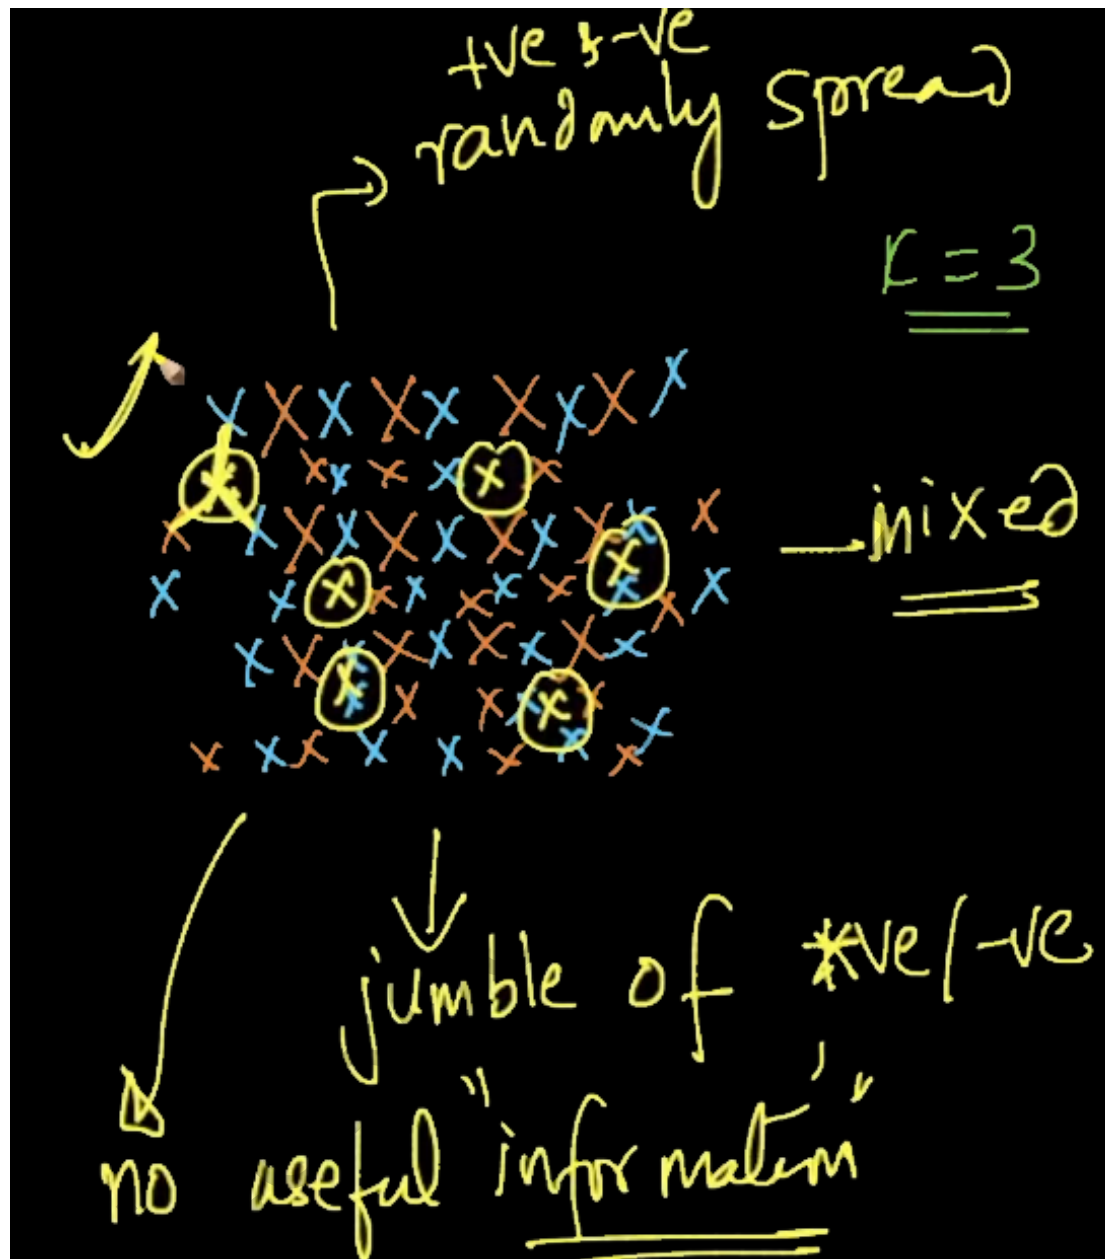 +ve & -ve
randomly spread
K = 3
mixed
jumble of +ve/-ve
no useful "information"